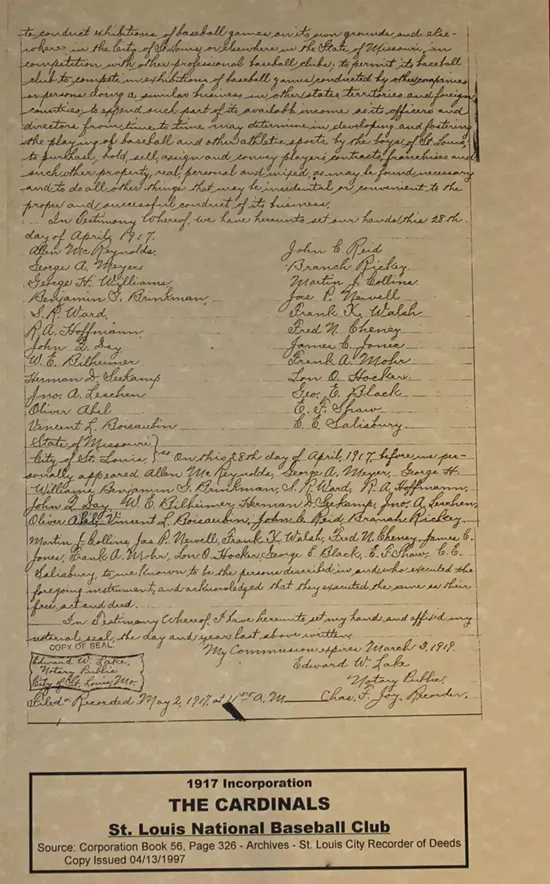 to conduct exhibitions of baseball games on its own grounds and else-
where in the City of St. Louis, or elsewhere in the State of Missouri, in
competition with other professional baseball clubs; to permit its baseball
club to compete in exhibitions of baseball games conducted by other companies
or persons doing a similar business in other states territories and foreign
countries; to expend such part of its available income as its officers and
directors from time to time may determine in developing and fostering
the playing of baseball and other athletic sports by the boys of St. Louis;
to purchase, hold, sell, assign and convey players contracts, franchises and
such other property, real, personal and mixed, as may be found necessary
and to do all other things that may be incidental or convenient to the
proper and successful conduct of its business.
In Testimony Whereof, we have hereunto set our hands this 28th
day of April, 1917.
Allen McReynolds. John C. Reid
George A. Meyer. Branch Rickey
George H. Williams Martin J. Collins
Benjamin G. Brinkman, Jas. P. Newell
S. R. Ward, Frank X. Walsh
R. A. Hoffmann, Fred N. Cheney
John L. Day James C. Jones
W. E. Bilheimer Frank A. Mohr
Herman D. Seekamp Lon O. Hocker
Jno. A. Leschen Geo. E. Black
Oliver Abel E. F. Shaw
Vincent L. Boisaubin C. C. Salisbury
State of Missouri }
City of St. Louis, } ss On this 28th day of April, 1917 before me per-
sonally appeared Allen McReynolds, George A. Meyer, George H.
Williams Benjamin G. Brinkman, S. R. Ward, R. A. Hoffmann,
John L. Day W. E. Bilheimer, Herman D. Seekamp, Jno. A. Leschen,
Oliver Abel Vincent L. Boisaubin, John C. Reid, Branch Rickey
Martin J. Collins Jas. P. Newell, Frank X. Walsh, Fred N. Cheney James C.
Jones, Frank A. Mohr, Lon O. Hocker George E. Black, E. F. Shaw, C. C.
Salisbury, to me known to be the persons described in and who executed the
foregoing instrument, and acknowledged that they executed the same as their
free act and deed.
In Testimony Whereof, I have hereunto set my hand and affixed my
notarial seal, the day and year last above written.
COPY OF SEAL. My Commission expires March 3, 1919.
Edward W. Lake, Edward W. Lake
Notary Public Notary Public.
City of St. Louis, Mo.
Filed & Recorded May 2, 1917, at A.M. Chas. F. Joy, Recorder.
1917 Incorporation
THE CARDINALS
St. Louis National Baseball Club
Source: Corporation Book 56, Page 326 - Archives - St. Louis City Recorder of Deeds
Copy Issued 04/13/1997